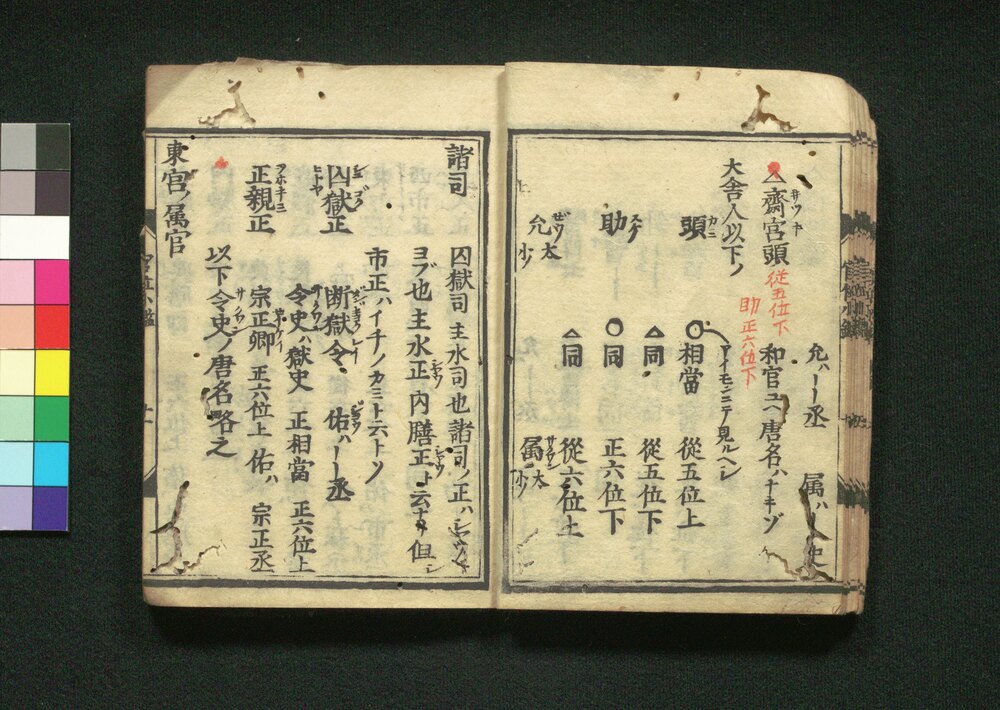 允ハ丨丨丞 属ハ丨史
△齋宮頭 サウヤ 従五位下 助正六位下 和官ユヘ唐名ハナキゾ
大舎人以下ノ アイモンニテ見ルヘシ
頭 カミ 〇相當 從五位上
△同 從五位下
助 スケ 〇同 正六位下
允 ぜウ 太 少 △同 從六位上
属 サクワン 太 少
諸司 囚獄司 主水司也諸司ノ正ハ
ヨブ也主水正内膳正ト云ナリ但シ
市正ハイチノカミト云トソ
囚獄正 ヒトヤ 断獄令 佑ハ丨丨丞
令史ハ獄史 正相當 正六位上
正親正 ヲホキミ 宗正卿 正六位上 佑ハ 宗正丞
以下令史ノ唐名略之
東宮ノ属官